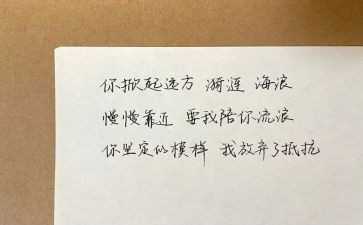 你掀起远方 涟漪 海浪
慢慢靠近 要我陪你流浪
你坚定的模样 我放弃了抵抗